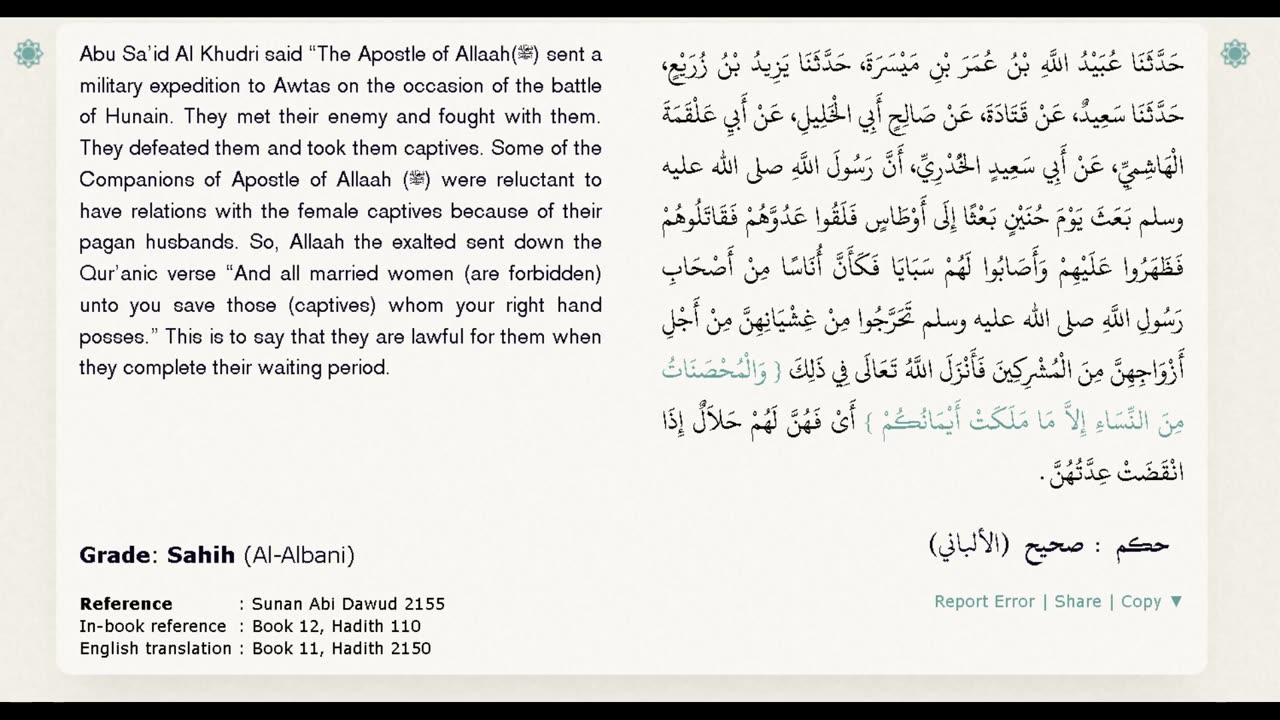 Abu Sa'id Al Khudri said “The Apostle of Allaah(ﷺ) sent a
military expedition to Awtas on the occasion of the battle
of Hunain. They met their enemy and fought with them.
They defeated them and took them captives. Some of the
Companions of Apostle of Allaah (ﷺ) were reluctant to
have relations with the female captives because of their
pagan husbands. So, Allaah the exalted sent down the
Qur'anic verse “And all married women (are forbidden)
unto you save those (captives) whom your right hand
posses.” This is to say that they are lawful for them when
they complete their waiting period.
حَدَّثَنَا عُبَيْدُ اللَّهِ بْنُ عُمَرَ بْنِ مَيْسَرَةَ، حَدَّثَنَا يَزِيدُ بْنُ زُرَيْعٍ،
حَدَّثَنَا سَعِيدٌ، عَنْ قَتَادَةَ، عَنْ صَالِحٍ أَبِي الْخَلِيلِ، عَنْ أَبِي عَلْقَمَةَ
الْهَاشِمِيِّ، عَنْ أَبِي سَعِيدٍ الْخُدْرِيِّ، أَنَّ رَسُولَ اللَّهِ صلى الله عليه
وسلم بَعَثَ يَوْمَ حُنَيْنٍ بَعْثًا إِلَى أَوْطَاسٍ فَلَقُوا عَدُوَّهُمْ فَقَاتَلُوهُمْ
فَظَهَرُوا عَلَيْهِمْ وَأَصَابُوا لَهُمْ سَبَايَا فَكَأَنَّ أُنَاسًا مِنْ أَصْحَابِ
رَسُولِ اللَّهِ صلى الله عليه وسلم تَحَرَّجُوا مِنْ غِشْيَانِهِنَّ مِنْ أَجْلِ
أَزْوَاجِهِنَّ مِنَ الْمُشْرِكِينَ فَأَنْزَلَ اللَّهُ تَعَالَى فِي ذَلِكَ { وَالْمُحْصَنَاتُ
مِنَ النِّسَاءِ إِلاَّ مَا مَلَكَتْ أَيْمَانُكُمْ } أَىْ فَهُنَّ لَهُمْ حَلاَلٌ إِذَا
انْقَضَتْ عِدَّتُهُنَّ .
Grade: Sahih (Al-Albani)
حكم : صحيح (الألباني)
Reference : Sunan Abi Dawud 2155
In-book reference : Book 12, Hadith 110
English translation : Book 11, Hadith 2150
Report Error | Share | Copy ▼